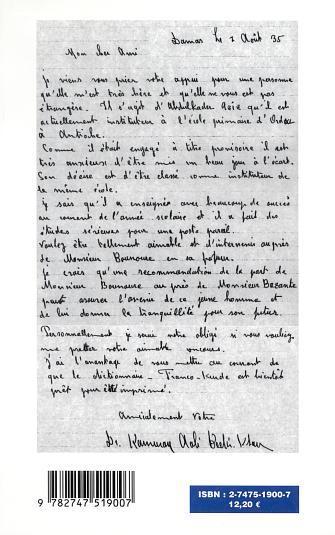 Damas le 2 Août 35
Mon cher Ami
je viens vous prier votre appui pour une personne
qu'elle m'est très chère et qu'elle ne vous est pas
étrangère. Il s'agit d'Abdulkader Aziz qu'il est
actuellement instituteur à l'école primaire d'
à Antioche.
Comme il était engagé à titre provisoire il est
très anxieux d'être mis un beau jour à l'écart.
Son désire est d'être classé comme instituteur de
la même école.
j'y sais qu'il a enseigné avec beaucoup de succès
au courant de l'année scolaire et il a fait des
études sérieuses pour une poste pareil.
voulez être tellement aimable et d'intervenir auprès
de Monsieur Bounoure en sa faveur.
je crois qu'une recommandation de la part de
Monsieur Bounoure au près de Monsieur Bazante
peut assurer l'avenir de ce jeune homme et
de lui donner la tranquillité pour son
Personnellement je serai votre obligé si vous vouliez
me prêter votre aimable concours.
J'ai l'avantage de vous mettre au courant de
que le dictionnaire - Franco-kurde est bientôt
prêt pour être imprimé.
Amicalement Vôtre
Dr. Kamuran Aali Bedir-Khan
ISBN : 2-7475-1900-7
12,20 €
9 782747 519007